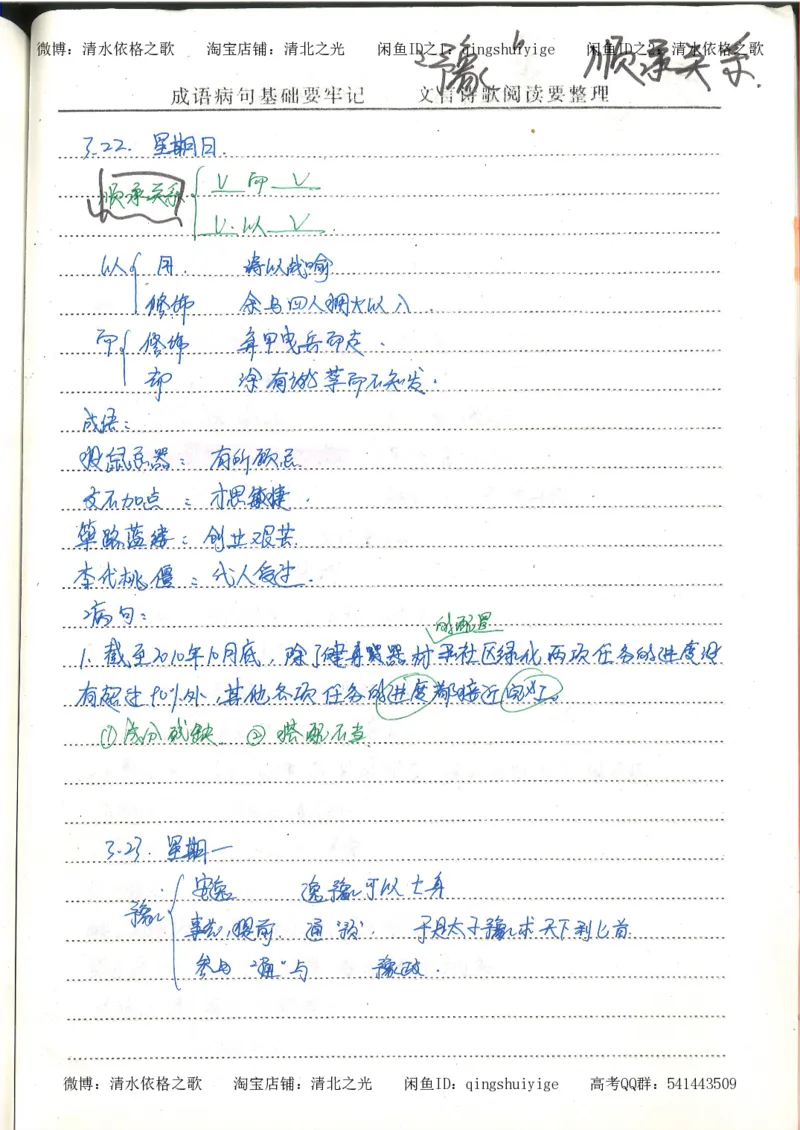 微博：清水依格之歌 淘宝店铺：清北之光 闲鱼ID之1：qingshuiyige 闲鱼ID之2：清水依格之歌
豫 顺承关系.
成语病句基础要牢记 文言诗歌阅读要整理
3.22. 星期日.
顺承关系 V 而 V
V.以 V.
以 用. 将以战喻
修饰 余与四人拥火以入.
而 修饰 弃甲曳兵而走.
却 涂有饿莩而不知发.
成语：
投鼠忌器：有所顾忌
文不加点：才思敏捷.
筚路蓝缕：创业艰苦.
李代桃僵：代人受过.
病句：
的配置
1. 截至2010年10月底，除了健身器材和社区绿化两项任务的进度没
有超过90%外，其他各项任务的进度都接近完工。
①成分残缺 ②搭配不当
3.23. 星期一
豫 安逸 逸豫可以亡身
事先，提前. 通"预". 于是太子豫求天下利匕首
参与 通"与 豫政.
微博：清水依格之歌 淘宝店铺：清北之光 闲鱼ID：qingshuiyige 高考QQ群：541443509